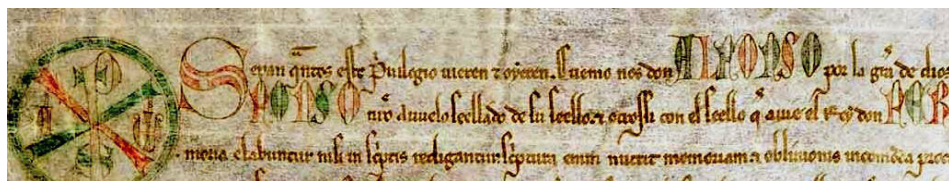 Sepan q̃ntos este p̃uilegio uieren ⁊ oyeren. Cuemo nos don ALFONSO por la gr̃a de dios
FONSO nr̃o auuelo seellado de su seello ⁊ otrossi con el seello q̃ auie el Rey don FER
moria elabuntur nisi in sc̃ptis redigantur. sc̃ptura enim nutrit memoriam ⁊ obliuionis incomoda pro